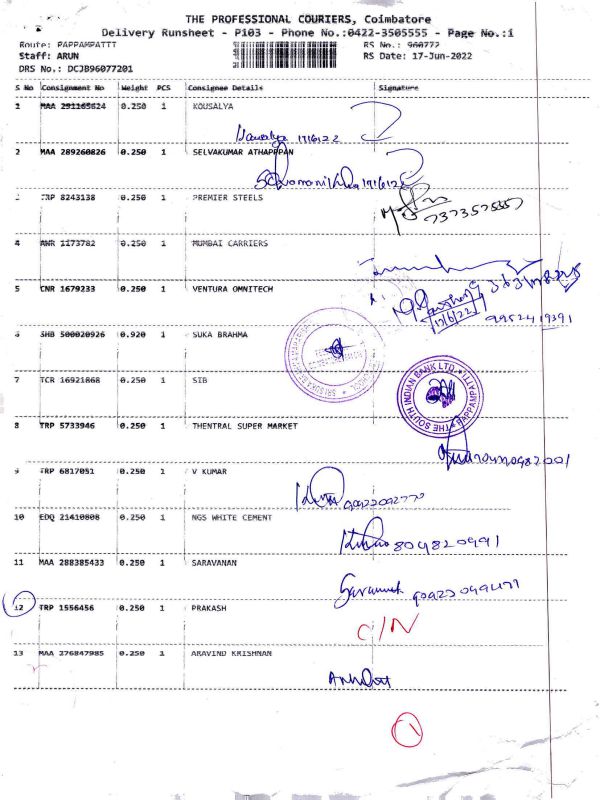 THE PROFESSIONAL COURIERS, Coimbatore
Delivery Runsheet - P103 - Phone No.:0422-3505555 - Page No.:1
Route: PAPPAMPATTI RS No.: 960772
Staff: ARUN RS Date: 17-Jun-2022
DRS No.: DCJB96077201
S No Consignment No Weight PCS Consignee Details Signature
1 MAA 291165624 0.250 1 KOUSALYA
17/6/22
2 MAA 289260826 0.250 1 SELVAKUMAR ATHAPPPAN
17/6/22
3 TRP 8243138 0.250 1 PREMIER STEELS
4 ANR 1173782 0.250 1 MUMBAI CARRIERS
5 CNR 1679233 0.250 1 VENTURA OMNITECH
17/6/22 9952419391
6 SHB 500020926 0.920 1 SUKA BRAHMA
7 TCR 16921868 0.250 1 SIB
THE SOUTH INDIAN BANK LTD. PAPPAMPATTI
8 TRP 5733946 0.250 1 THENTRAL SUPER MARKET
9 TRP 6817051 0.250 1 V KUMAR
10 EDQ 21410808 0.250 1 NGS WHITE CEMENT
8049820991
11 MAA 288385433 0.250 1 SARAVANAN
12 TRP 1556456 0.250 1 PRAKASH
C/N
13 MAA 276847985 0.250 1 ARAVIND KRISHNAN
1